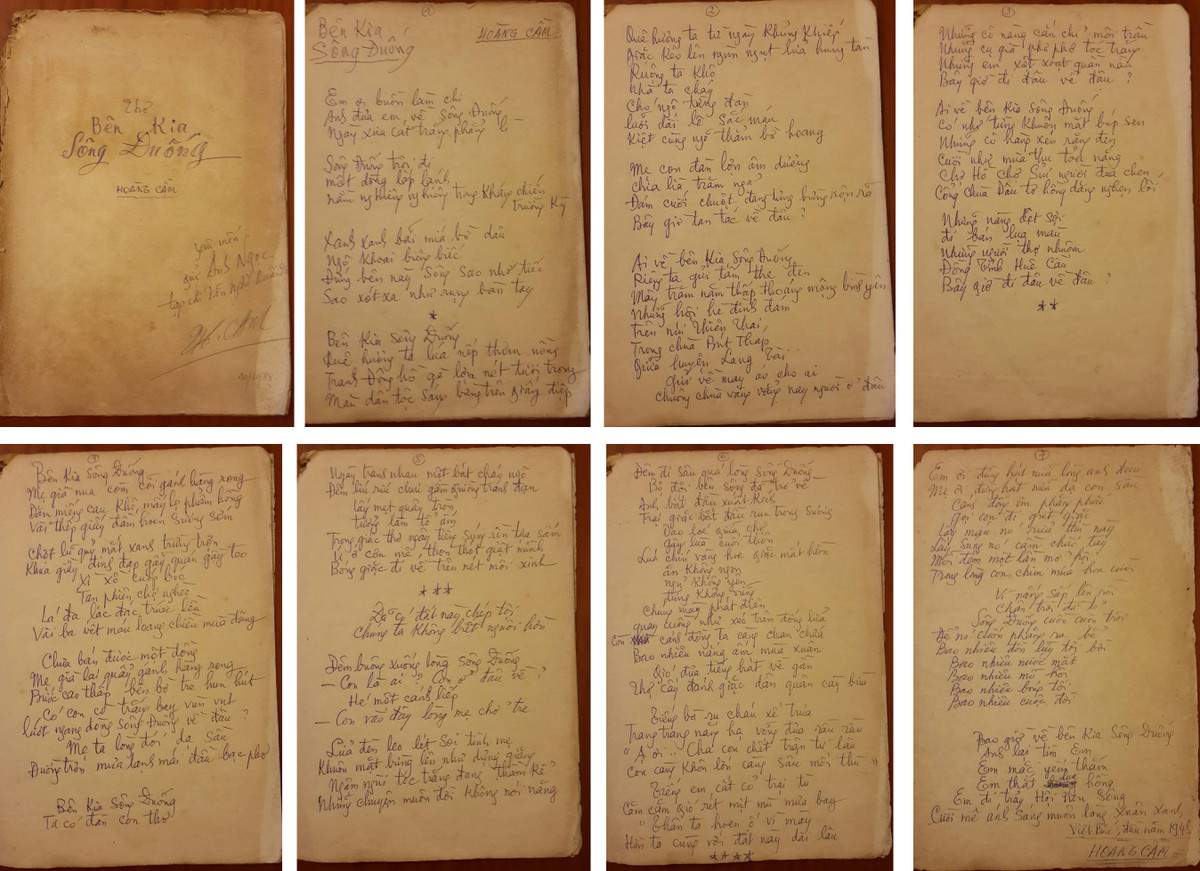 Thơ
Bên Kia
Sông Đuống
HOÀNG CẦM
gửi Anh Ngọc
10/1985
1
Bên Kia
Sông Đuống
HOÀNG CẦM
Em ơi buồn làm chi
Anh đưa em về Sông Đuống
Ngày xưa cát trắng phẳng lì
Sông Đuống trôi đi
một dòng lấp lánh
nằm nghiêng nghiêng trong Kháng chiến
trường Kỳ
Xanh xanh bãi mía bờ dâu
Ngô Khoai biêng biếc
Đứng bên này Sông sao nhớ tiếc
Sao xót xa như rụng bàn tay
*
Bên Kia Sông Đuống
Quê hương ta lúa nếp thơm nồng
Tranh Đông hồ gà lợn nét tươi trong
Màu dân tộc sáng bừng trên giấy điệp
2
Quê hương ta từ ngày Khủng Khiếp
Giặc Kéo lên ngùn ngụt lửa hung tàn
Ruộng ta Khô
Nhà ta cháy
Chó ngộ từng đàn
lưỡi dài lê sắc máu
Kiệt cùng ngõ thẳm bờ hoang
Mẹ con đàn lợn âm dương
chia lìa trăm ngả
Đám cưới chuột đang tưng bừng rộn rã
Bây giờ tan tác về đâu ?
Ai về bên Kia Sông Đuống
Riêng ta gửi tấm the đen
Mấy trăm năm thấp thoáng mộng bình yên
Những hội hè đình đám
Trên núi Thiên Thai,
Trong chùa Bút Tháp
Giữa huyện Lang Tài
Gửi về may áo cho ai
chuông chùa văng vẳng nay người ở đâu
3
Những cô nàng cắn chỉ môi trầu
Những cụ già phơ phơ tóc trắng
Những em xột xoạt quần nâu
Bây giờ đi đâu về đâu ?
Ai về bên Kia Sông Đuống
Có nhớ từng Khuôn mặt búp sen
Những cô hàng xén răng đen
Cười như mùa thu tỏa nắng
Chợ Hồ chợ Sủi người đua chen
Cổng chùa Dâu tơ hồng dăng nghẽn lối
Những nàng dệt sợi
đi bán lụa màu
Những người thợ nhuộm
Đồng Tỉnh Huê Cầu
Bây giờ đi đâu về đâu ?
**
Bên Kia Sông Đuống
Mẹ già nua còm cõi gánh hàng rong
Dăm miếng cau Khô, mấy lọ phẩm hồng
Vài thếp giấy đầm hoen sương sớm
Chợt lũ quỷ mắt xanh trừng trộn
Khua giầy đinh đạp gẫy quán gầy teo
Xì xồ cướp bóc
Tan phiên chợ nghèo
Lá đa lác đác trước lều
Vài ba vết máu loang chiều mùa đông
Chưa bán được một đồng
Mẹ già lại quẩy gánh hàng rong
Bước cao thấp bên bờ tre hun hút
Có con cò trắng bay vùn vụt
lướt ngang dòng sông Đuống về đâu ?
Mẹ ta lòng đói dạ sầu
Đường trơn mưa lạnh mái đầu bạc phơ
Bên Kia Sông Đuống
Ta có đàn con thơ
5
Ngày tranh nhau một bát cháo ngô
Đêm líu ríu chui gầm giường tránh đạn
lấy mẹt quây tròn
tưởng làm tổ ấm
Trong giấc thơ ngây tiếng súng rền tựa sấm
Ú ớ cơn mê, thon thót giật mình
Bóng giặc đi về trên nét môi xinh
***
Đã có đất này chép tội
Chúng ta Không biết nguôi hờn
Đêm buông xuống lòng Sông Đuống
— Con là ai ? Con ở đâu về ?
Hé một cánh liếp
— Con vào đây lòng mẹ chở tre
Lửa đèn leo lét Soi tình mẹ
Khuôn mặt bừng lên như dựng giăng
Ngậm ngùi tóc trắng đang thầm Kể
Những chuyện muôn đời Không nói năng
6
Đêm đi sâu quá lòng sông Đuống
Bộ đội bên sông đã trở về
Anh bắt đầu xuất Kích
Trại giặc bắt đầu run trong sương
Dao loé giữa chợ
Gậy lùa cuối thôn
Lúa chín vàng hoe giặc mất hồn
ăn Không ngon
ngủ Không yên
đứng Không vững
Chúng mày phát điên
quay cuồng như xéo trên đống lửa
Còn cánh đồng ta càng chan chứa
Bao nhiêu nắng ấm mùa xuân
Gió đưa tiếng hát về gần
Thợ cấy đánh giặc dân quân cày bừa
Tiếng bà ru cháu xế trưa
Trang trang nắng hạ võng đưa rầu rầu
" À ơi " Cha con chết trận từ lâu
Con càng Khôn lớn càng sâu mối thù "
Tiếng em cắt cỏ trại tù
Căm căm gió rét mịt mù mưa bay
" Thân ta hoen ố vì mày
Hờn ta cùng với đất này dài lâu
****
7
Em ơi đừng hát nữa lòng anh đau
Mẹ ơi, đừng hát nữa dạ con sầu
Cánh đồng im phăng phắc
Gọi con đi giết giặc
Lấy máu nó rửa thù này
Lấy súng nó cầm chắc tay
Mỗi đêm một lần mở hội
Trong lòng con, chim múa hoa cười
Vì nắng sắp lên rồi
Chân trời đã tỏ
Sông Đuống cuồn cuộn trôi
Để nó cuốn phăng ra bể
Bao nhiêu đồn lũy tơi bời
Bao nhiêu nước mắt
Bao nhiêu mồ hôi
Bao nhiêu bóng tối
Bao nhiêu cuộc đời
Bao giờ về bên Kia Sông Đuống
Anh lại tìm Em
Em mặc yếm thắm
Em thắt lụa hồng
Em đi trảy Hội Non Sông
Cười mê ánh Sáng muôn lòng Xuân Xanh
Việt Bắc, đầu năm 1948
HOÀNG CẦM